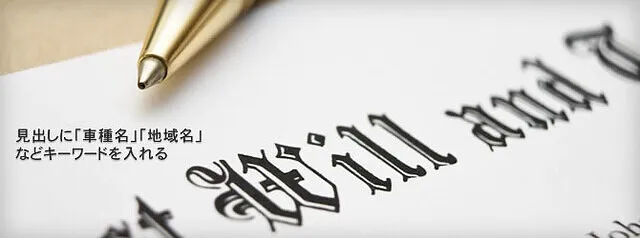 見出しに「車種名」「地域名」
などキーワードを入れる
t Will and